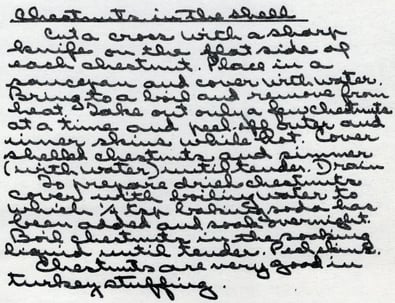 Chestnuts in the shell
Cut a cross with a sharp
knife on the flat side of
each chestnut. Place in a
saucepan and cover with water.
Bring to a boil and remove from
heat. Take out only a few chestnuts
at a time and peel off outer and
inner skins while hot. Cover
shelled chestnuts and simmer
(with water) until tender. Drain
To prepare dried chestnuts
cover with boiling water to
which tsp baking soda has
been added and soak overnight.
Boil chestnuts in the soaking
liquid until tender. Peel skins.
Chestnuts are very good in
turkey stuffing.